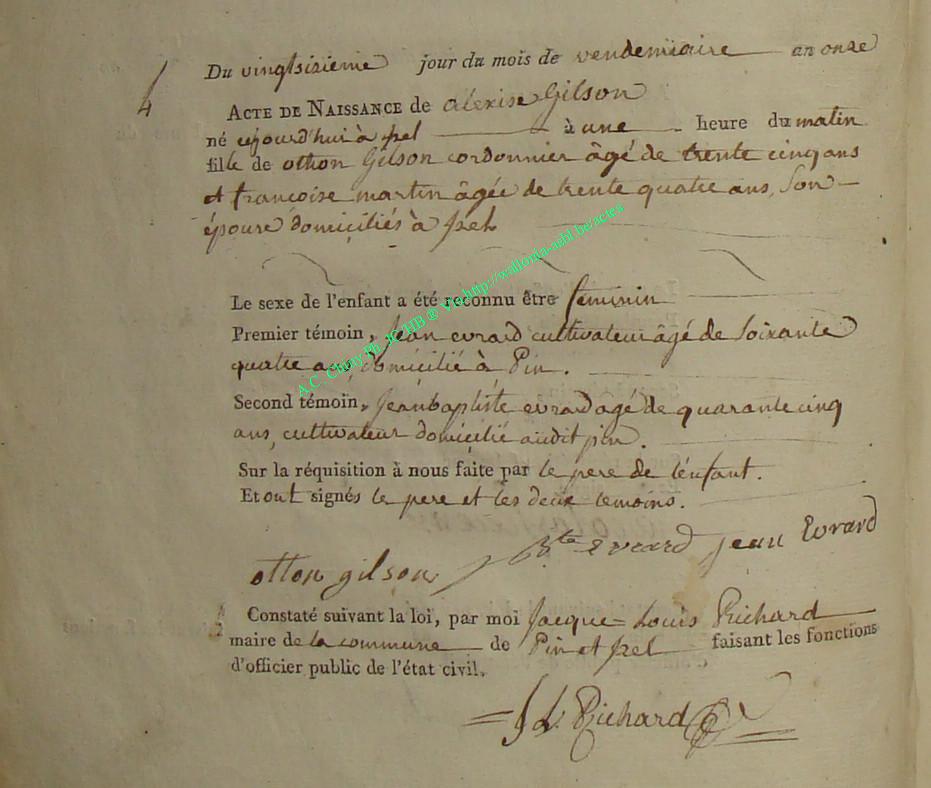 4
Du vingtsixieme jour du mois de vendemiaire an onze
ACTE DE NAISSANCE de alexise Gilson
né cejourd'hui à izel à une heure du matin
fille de othon Gilson cordonnier âgé de trente cinq ans
et francoise martin âgée de trente quatre ans, Son
épouse domiciliés à izel
Le sexe de l'enfant a été reconnu être feminin
Premier témoin, Jean evrard cultivateur âgé de Soixante
quatre ans, domicilié à Pin.
Second témoin, Jeanbaptiste evrard agé de quarante cinq
ans, cultivateur domicilié audit pin.
Sur la réquisition à nous faite par le pere de l'enfant.
Et ont signés le pere et les deux temoins.
otton gilson J Bte Evrard jean Evrard
Constaté suivant la loi, par moi Jacque Louis Richard
maire de la commune de Pin et izel faisant les fonctions
d'officier public de l'état civil.
J L Richard
A.C. Chiny Ph. JC HB ® Ver http://wallonia-asbl.be/actes